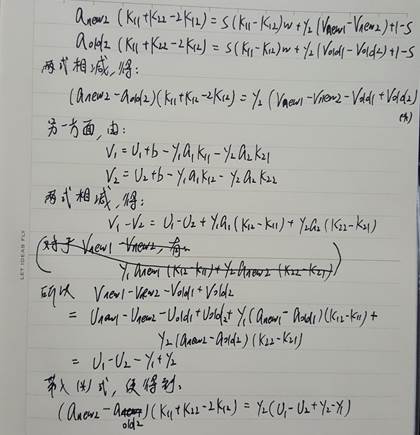 anew2 (K11+K22-2K12) = S(K11-K12)w + y2(Vnew1-Vnew2)+1-S
aold2 (K11+K22-2K12) = S(K11-K12)w + y2(Vold1-Vold2)+1-S
两式相减,得:
(anew2-aold2)(K11+K22-2K12) = y2 (Vnew1-Vnew2-Vold1+Vold2)
(*)
另一方面,由:
V1 = U1+b-y1a1K11-y2a2K21
V2 = U2+b-y1a1K12-y2a2K22
两式相减,得:
V1-V2 = U1-U2+y1a1(K12-K11)+y2a2(K22-K21)
对于 Vnew1-Vnew2, 有
y1anew1(K12-K11)+y2anew2(K22-K21)
所以 Vnew1-Vnew2-Vold1+Vold2
= Unew1-Unew2-Uold1+Uold2+y1(anew1-aold1)(K12-K11)+
y2(anew2-aold2)(K22-K21)
= U1-U2-y1+y2
带入(*)式,便得到:
(anew2-aold2)(K11+K22-2K12) = y2(U1-U2+y2-y1)
LET IDEAS FLY